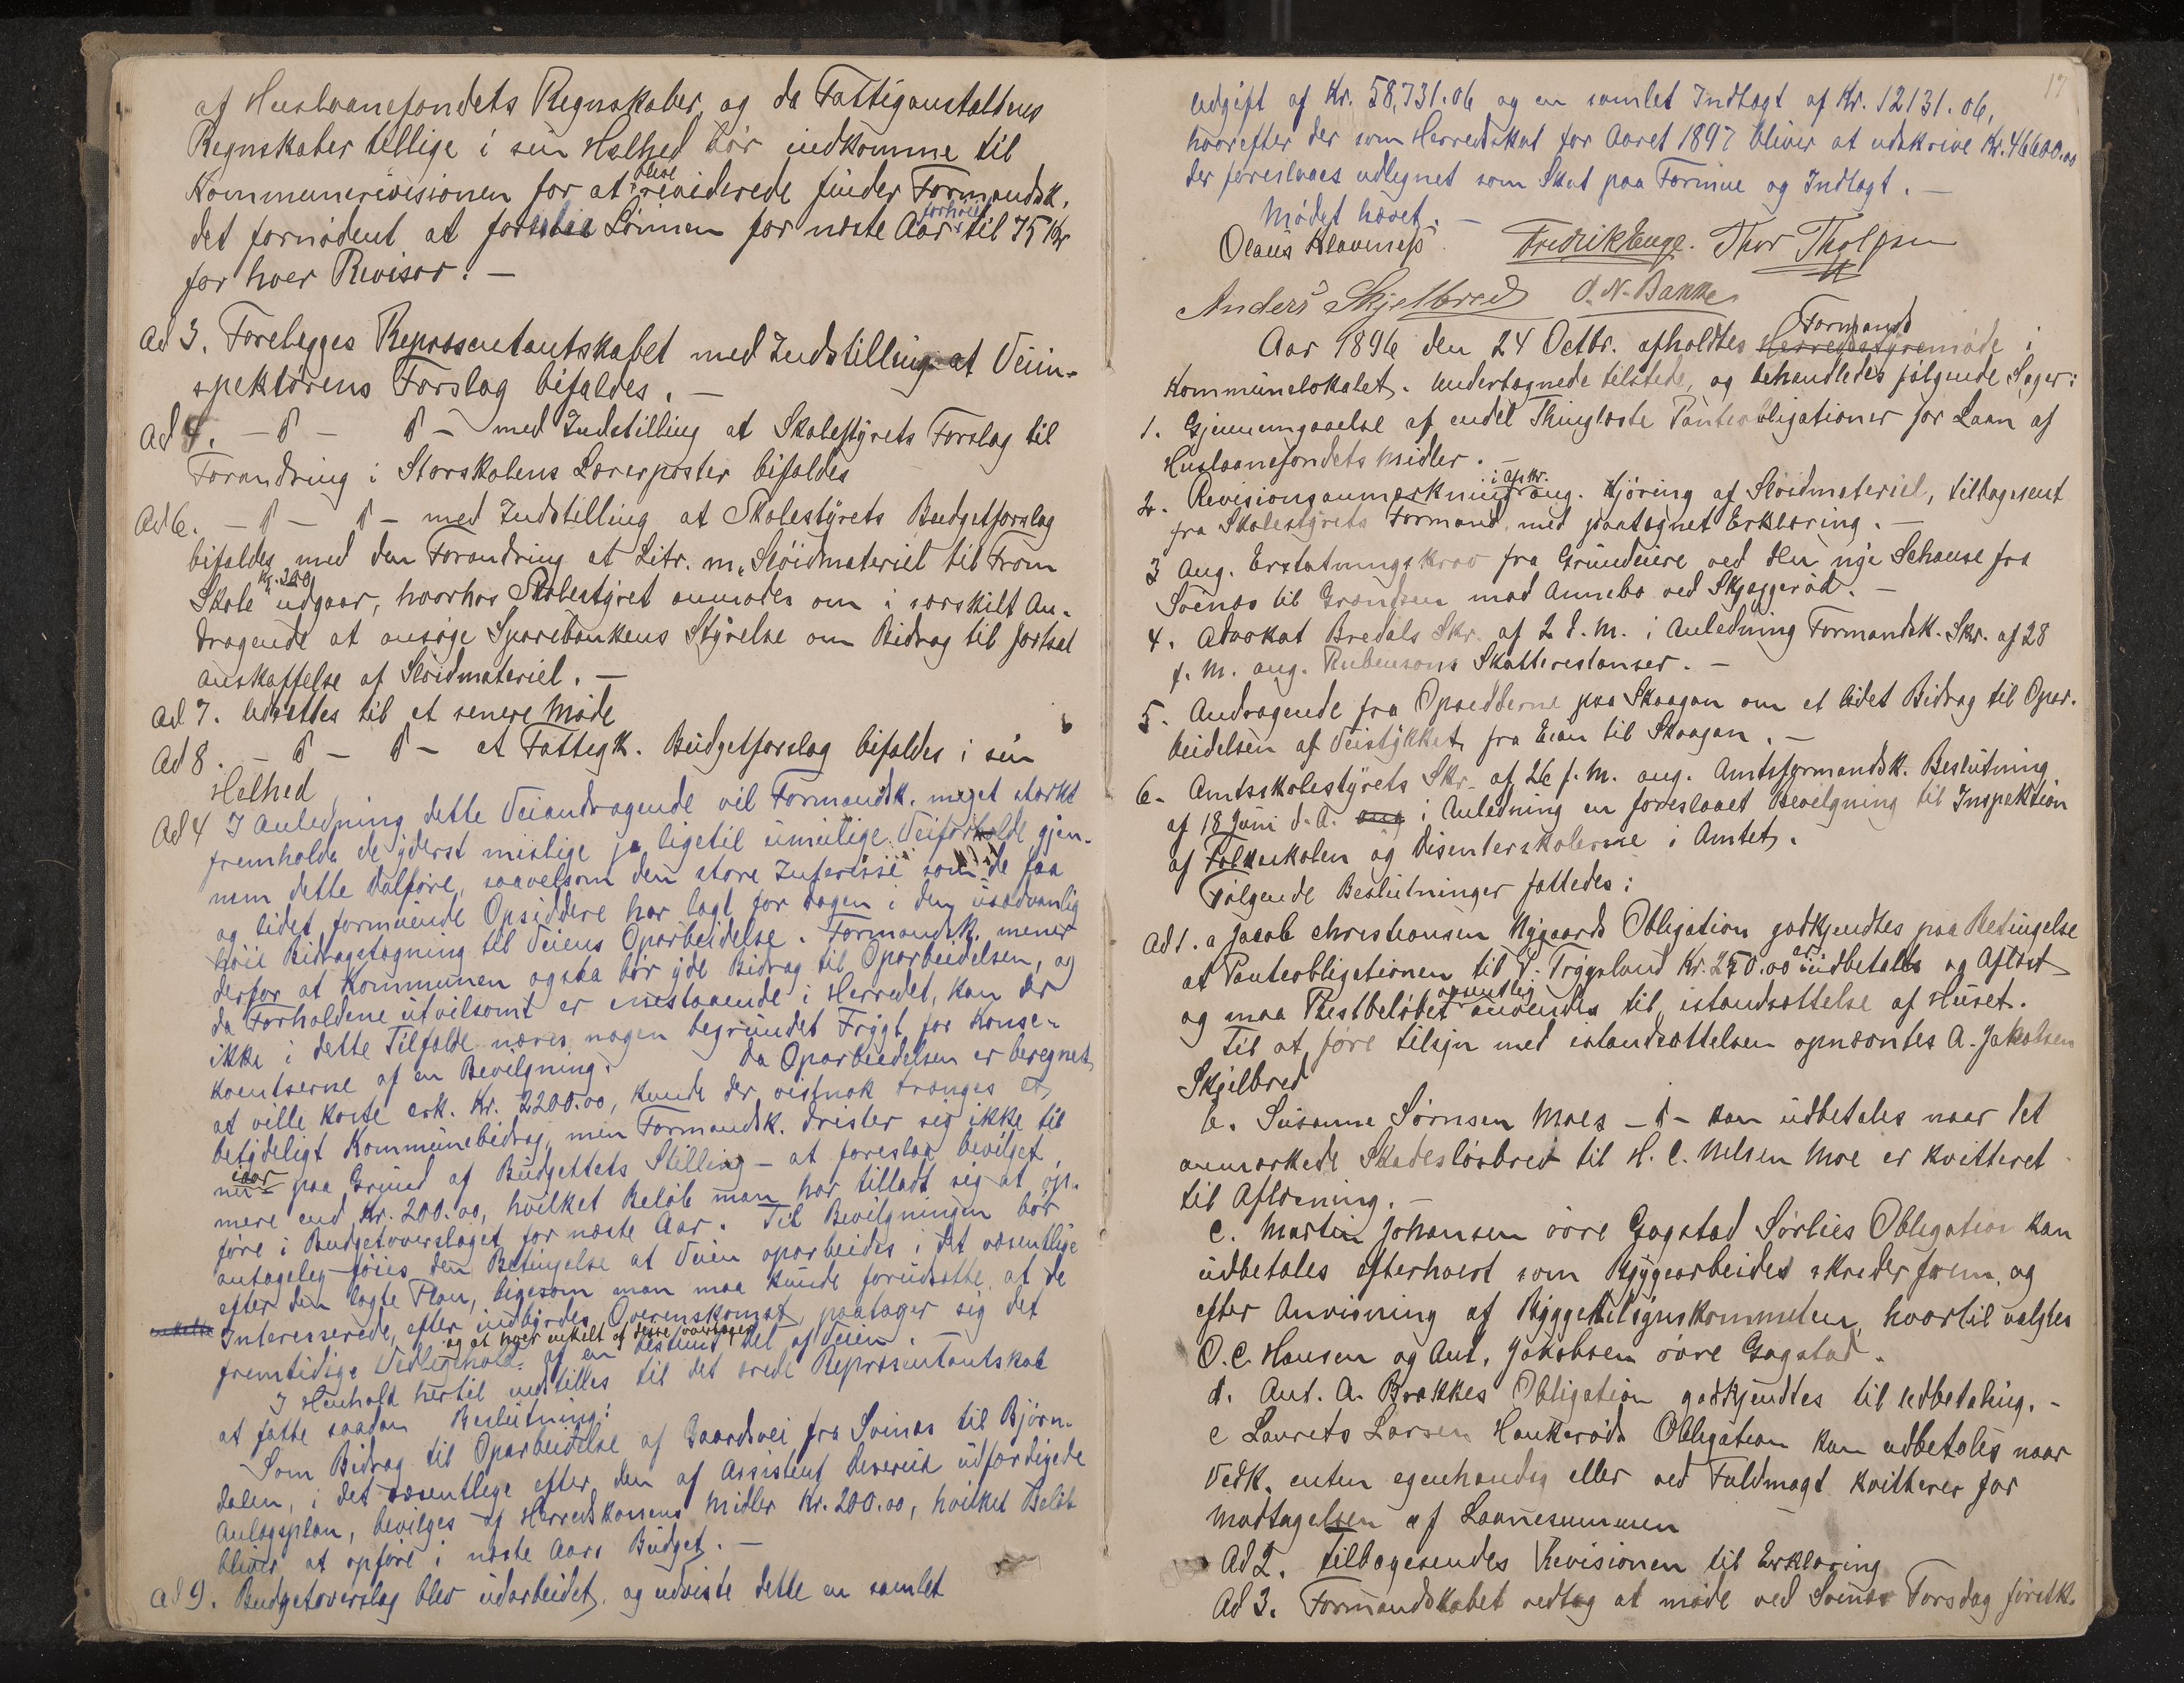 af Huslaanefondets Regnskaber, og da Fattiganstaltens
Regnskaber tillige i sin Helhed bør indkomme til
Kommunerivisionen for at blive reviderede finder Formandsk.
det fornødent at Lønnen for næste Aar forhøies til 75 Kr
for hver Revisor. —
Ad 3. Forelægges Repræsentantskabet med Indstilling at Veiin-
spektørens Forslag bifaldes. —
Ad 4. — d — d — med Indstilling at Skolestyrets Forslag til
Forandring i Storskolens Lærerposter bifaldes
Ad 6. — d — d — med Indstilling at Skolestyrets Budgetforslag
bifaldes med den Forandring at Litr. m. Sløidmateriel til Fram
Skole Kr. 300 udgaar, hvorhos Skolestyret anmodes om i særskilt An-
dragende at ansøge Sparebankens Styrelse om Bidrag til fortsat
anskaffelse af Sløidmateriel. —
Ad 7. Udsættes til et senere Møde
Ad 8. — d — d — at Fattigk. Budgetforslag bifaldes i sin
Helhed
Ad 4 I Anledning dette Veiandragende vil Formandsk. meget stærkt
fremholde de yderst mislige ja ligetil umulige Veiforholde gjen-
nem dette Dalføre, saavelsom den store Interesse som de faa
og lidet formuende Opsiddere har lagt for Dagen i den usædvanlig
høie Bidragstegning til Veiens Oparbeidelse. Formandsk. mener
derfor at Kommunen ogsaa bør yde Bidrag til Oparbeidelsen, og
da Forholdene utvilsomt er enestaaende i Herredet, kan der
ikke i dette Tilfælde næres nogen begrundet Frygt for Konse-
kventserne af en Bevilgning. Da Oparbeidelsen er beregnet
at ville koste cirk. Kr. 2200.00, kunde der vistnok trænges et
betydeligt Kommunebidrag, men Formandsk. drister sig ikke til
nu iaar — paa Grund af Budgettets Stilling — at foreslaa bevilget
mere end Kr. 200.00, hvilket Beløb man har tilladt sig at op-
føre i Budgetoverslaget for næste Aar. Til Bevilgningen bør
antageleg føies den Betingelse at Veien oparbeides i det væsentlige
efter den lagte Plan, ligesom man maa kunde forudsætte at de
enkelte Interesserede, efter indbyrdes Overenskomst, paatager sig det
og at hver enkelt af disse overtager
fremtidige Vedligehold af en bestemt Del af Veien. —
I Henhold hertil indstilles til det ærede Repræsentantskab
at fatte saadan Beslutning:
Som Bidrag til Oparbeidelse af Gaardsvei fra Svinæs til Bjørn-
dalen, i det væsentlege efter den af Assistent udfærdigede
Anlægsplan, bevilges af Herredskassens Midler Kr. 200.00, hvilket Beløb
bliver at opføre i næste Aars Budget. —
Ad 9. Budgetoverslag blev udarbeidet, og udviste dette en samlet
17
Udgift af Kr. 58,731.06 og en samlet Indtægt af Kr. 12131.06,
hvorefter der som Herredsskat for Aaret 1897 bliver at udskrive Kr. 46600.00
der foreslaaes udlignet som Skat paa Formue og Indtægt. —
Mødet hævet. —
Olaus Klaveness Fredrik Enge. Thor Tholfsen
Anders Skjelbred O. N. Bakke
Aar 1896 den 24 Octbr. afholdtes Herredsstyremøde Formands i
Kommunelokalet. Undertegnede tilstede, og behandledes følgende Sager:
1. Gjennemgaaelse af endel Thinglæste Panteobligationer for Laan af
Huslaanefondets Midler. —
2. Revisionsanmærkning i Afskr. ang. Kjøring af Sløidmateriel, tilbagesent
fra Skolestyrets Formand med paategnet Erklæring. —
3 Ang. Erstatningskrav fra Grundeiere ved den nye Schause fra
Svinæs til Grændsen mod Annebo ved Skjæggerød. —
4. Advokat Bredals Skr. af 2 d. M. i Anledning Formandsk. Skr. af 28
f. M. ang. Rubensons Skatterestanser. —
5. Andragende fra Opsidderne paa Skaagan om et lidet Bidrag til Opar-
beidelsen af Veistykket fra Eian til Skaagan. —
6. Amtsskolestyrets Skr. af 26 f. M. ang. Amtsformandsk. Beslutning
af 18 Juni d. A. ang i Anledning en foreslaaet Bevilgning til Inspektion
af Folkeskolen og Disenterskolerne i Amtet.
Følgende Beslutninger fattedes:
Ad 1. a Jacob Christiansen Nygaards Obligation godkjendtes paa Betingelse
at Panteobligationen til P. Trygsland Kr. 250.00 er indbetalts og Afløst
og maa Restbeløbet væsentlig anvendes til istandsættelse af Huset.
Til at føre tilsyn med istandsættelsen opnævntes A. Jakobsen
Skjelbred
b. Susanne Sørnsen Moes — d — kan udbetales naar det
anmærkede Skadesløsbrev til H. C. Nilsen Moe er kvitteret
til Aflæsning. —
c. Martin Johansen øvre Gogstad Sørlies Obligation kan
udbetales efterhvert som Byggearbeidet skreder frem, og
efter Anvisning af Byggetilsynskommiteen, hvortil valgtes
O. C. Hansen og Ant. Jakobsen øvre Gogstad.
d. Ant. A. Brekkes Obligation godkjendtes til Udbetaling. —
e Laurets Larsen Haukerøds Obligation kan udbetales naar
Vedk. enten egenhændig eller ved Fuldmagt kvitterer for
Modtagelsen af Laanesummen
Ad 2. Tilbagesendes Revisionen til Erklæring
Ad 3. Formandskabet vedtog at møde ved Svinæs Torsdag førstk.